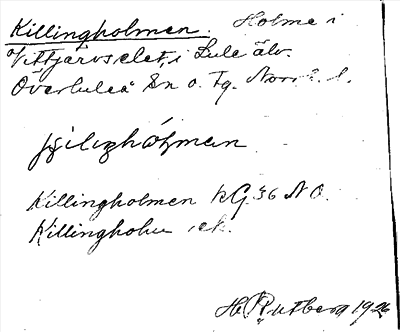 Killingholmen. Holme i
Vittjärvselet i Lule älv.
Överluleå Sn o. Tg.
Killingholmen kG. 36 NO.
Killingholm
H. Rutberg 1926